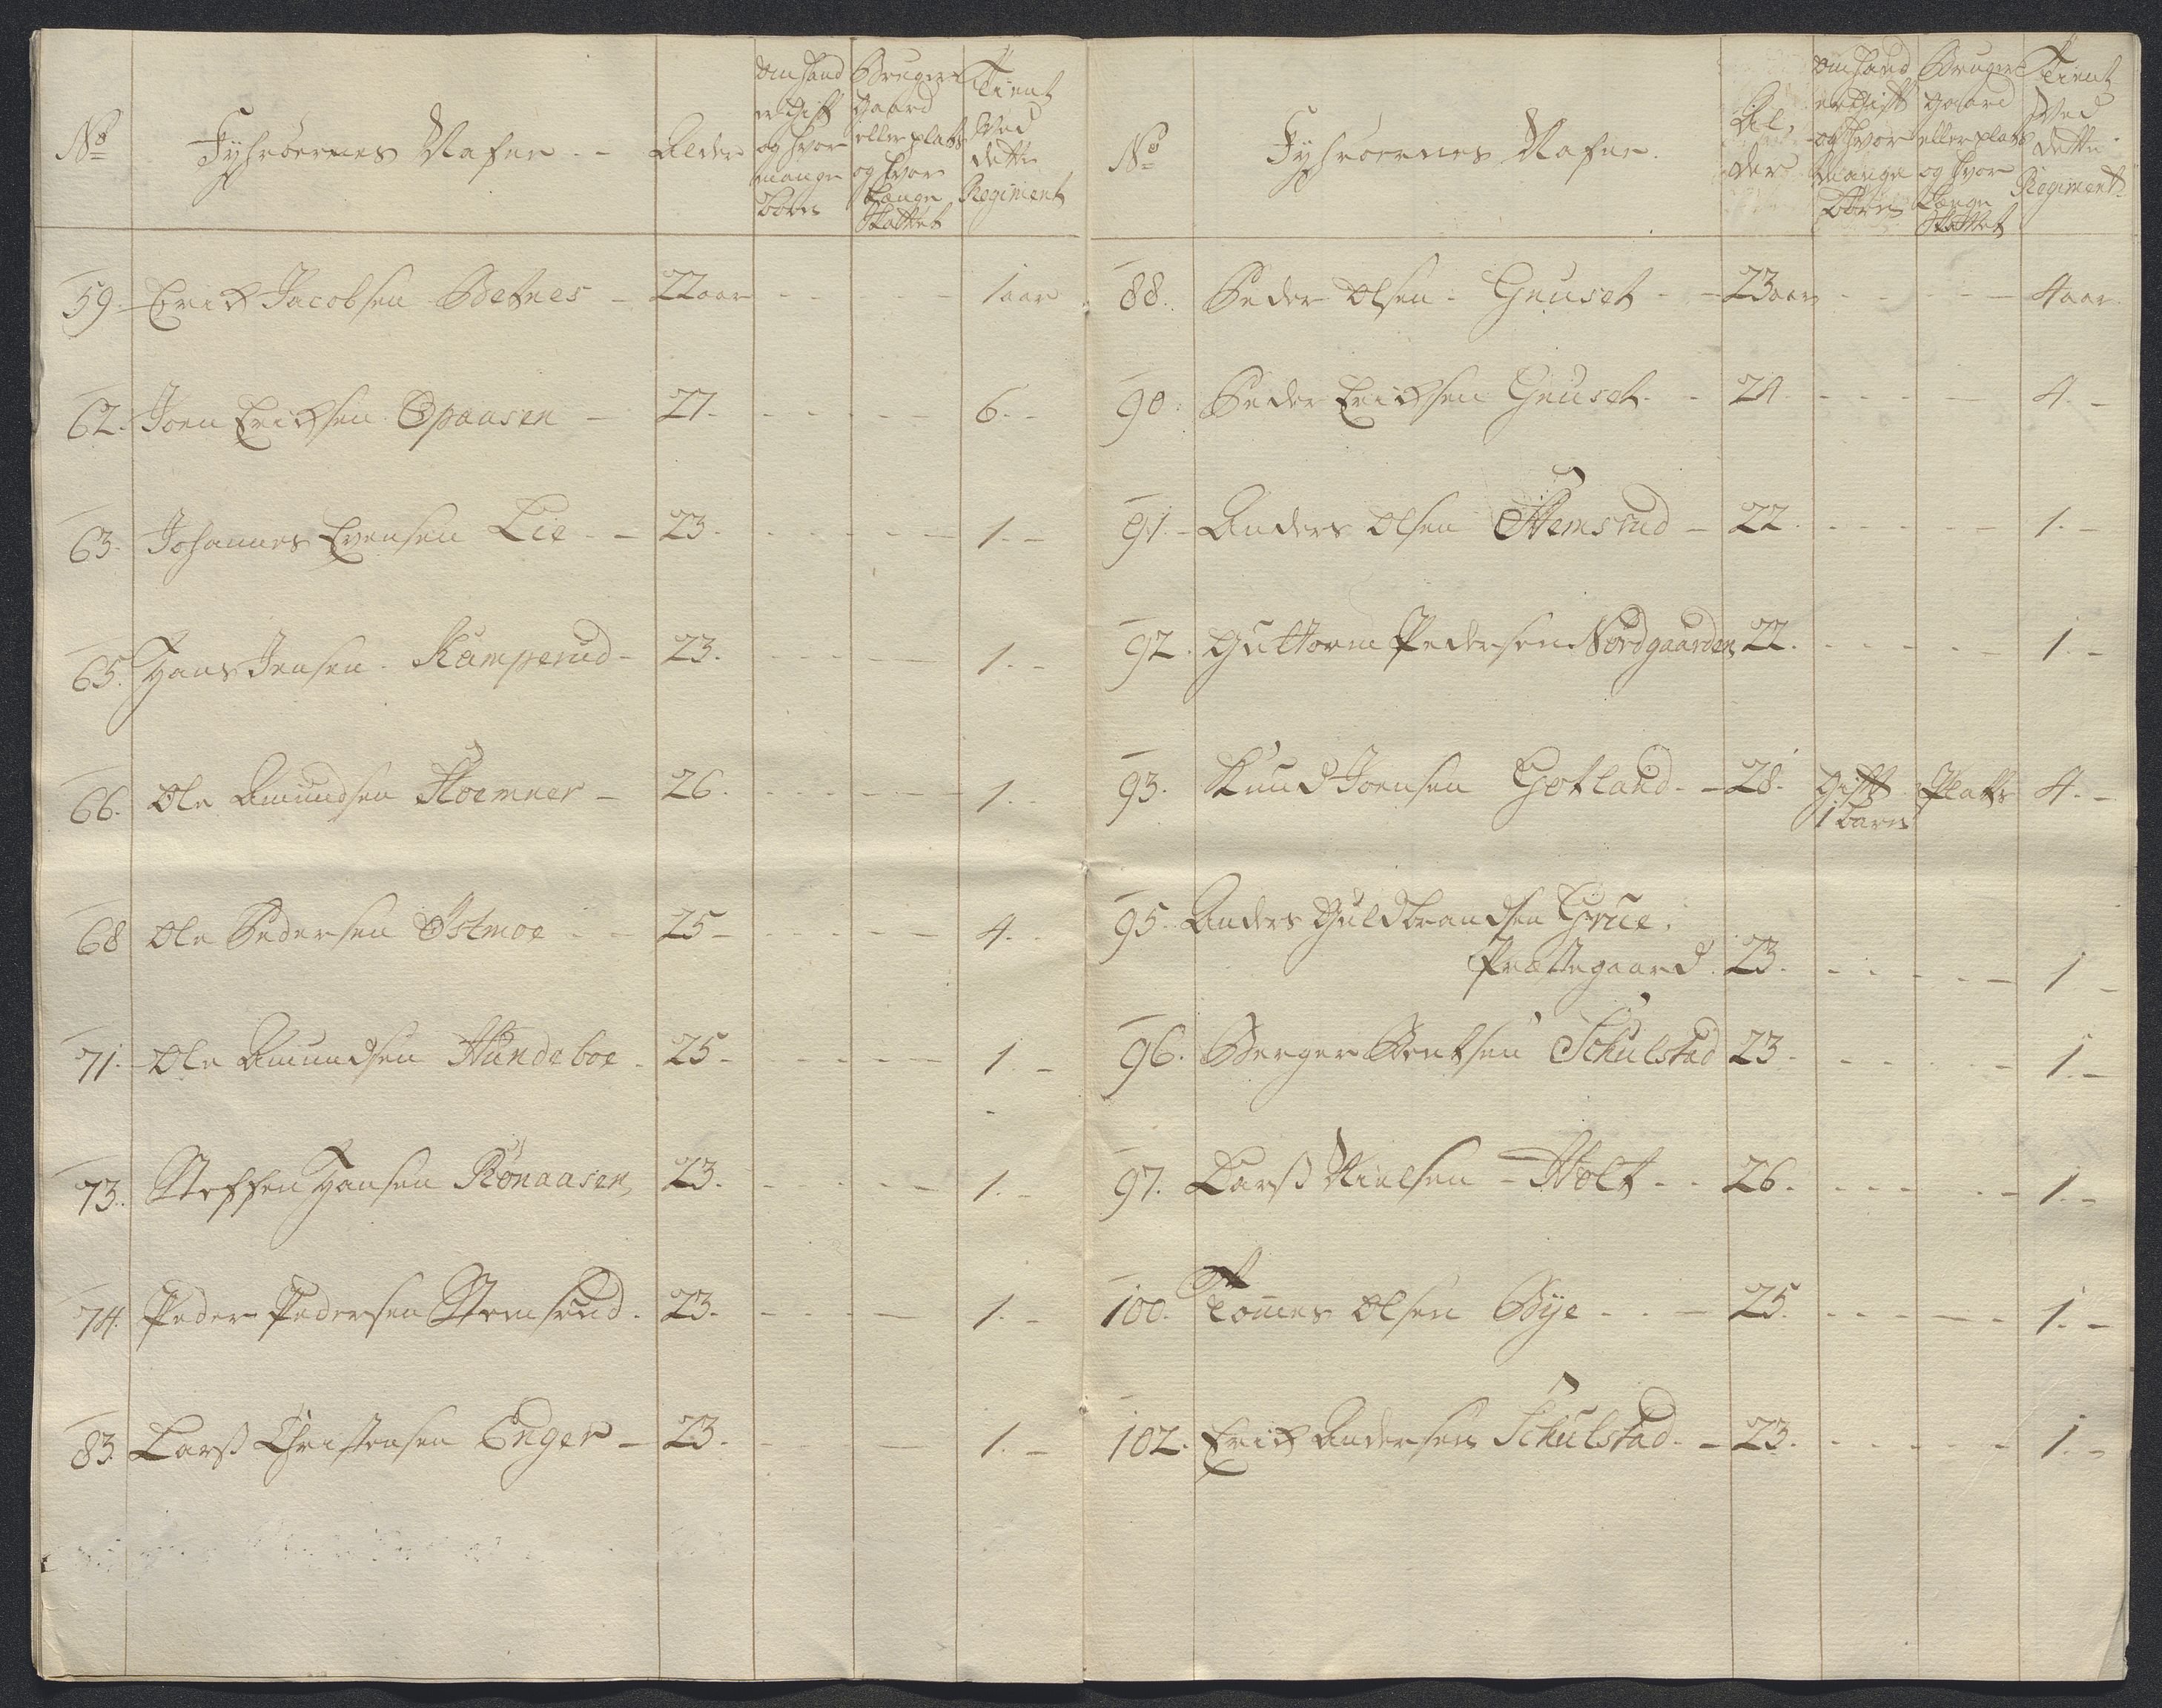 No
Fyhrernes Nafne. -
Alder
om hand
er Gift
og hvor
mange
børn
Bruger
gaard
eller plads
og hvor
længe
Skattet
Tient
Ved
dette
Regiment
59. Erick Jacobsen Betnes - 22 aar - - - 1 aar
62. Joen Ericksen Opaasen - 27. - - - - 6. -
63. Johannes Evensen Lie - - 23. - - - - 1. -
65. Hans Jensen. Kamperud - 23. - - - - 1. -
66. Ole Amundsen Stoemner - 26. - - - - 1. -
68 Ole Pedersen Istmoe - - 25 - - - - - 4. -
71. Ole Amundsen Hundeboe - 25 - - - - - 1. -
73. Steffen Hansen Rönaasen, 23. - - - - 1. -
74. Peder Pedersen Stemsrud. 23. - - - 1. -
83. Lars Christensen Enger - 23. - - 1. -
No
Fyhrernes Nafne.
Al,
der
om hand
er Gift
og hvor
mange
Børn
Bruger
gaard
eller plads
og hvor
længe
Skattet
Tient
Ved
dette
Regiment
88. Peder Olsen - Gruset - - 23 aar - - - - 4 aar
90. Peder Ericksen Gruset - - 24 - - - - 4. -
91. - Anders Olsen Stemsrud - 22. - - - - 1. -
92. Guttorm Pedersen Nordgaarden 22. - - - - 1. -
93. Knud Joensen Gotland. - 28. Gift Plads 4. -
1 barn
95. Anders Guldbrandsen Grue,
Præstegaard. 23. - - - - 1 -
96. Berger Bentsen Schulstad 23 - - - - 1. -
97. Lars Nielsen - Holt - - 26. - - - - - 1. -
100. Tomes Olsen Bye - - - 25. - - - - - 1. -
102. Erick Andersen Schulstad. - 23. - - - - 1. -